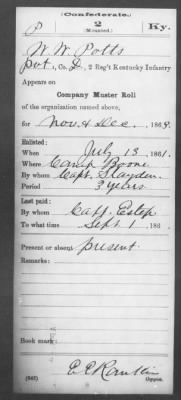 (Confederate.)
P 2 Ky.
(Mounted.)
W. W. Potts
Pvt, Co. D, 2 Reg't Kentucky Infantry
Appears on
Company Muster Roll
of the organization named above,
for Nov & Dec, 186
Enlisted:
When July 13, 1861.
Where Camp Boone
By whom Capt. Slayden
Period 3 years
Last paid:
By whom Capt. Estep
To what time Sept. 1, 186 .
Present or absent Present
Remarks:
Book mark:
(642) Copyist.